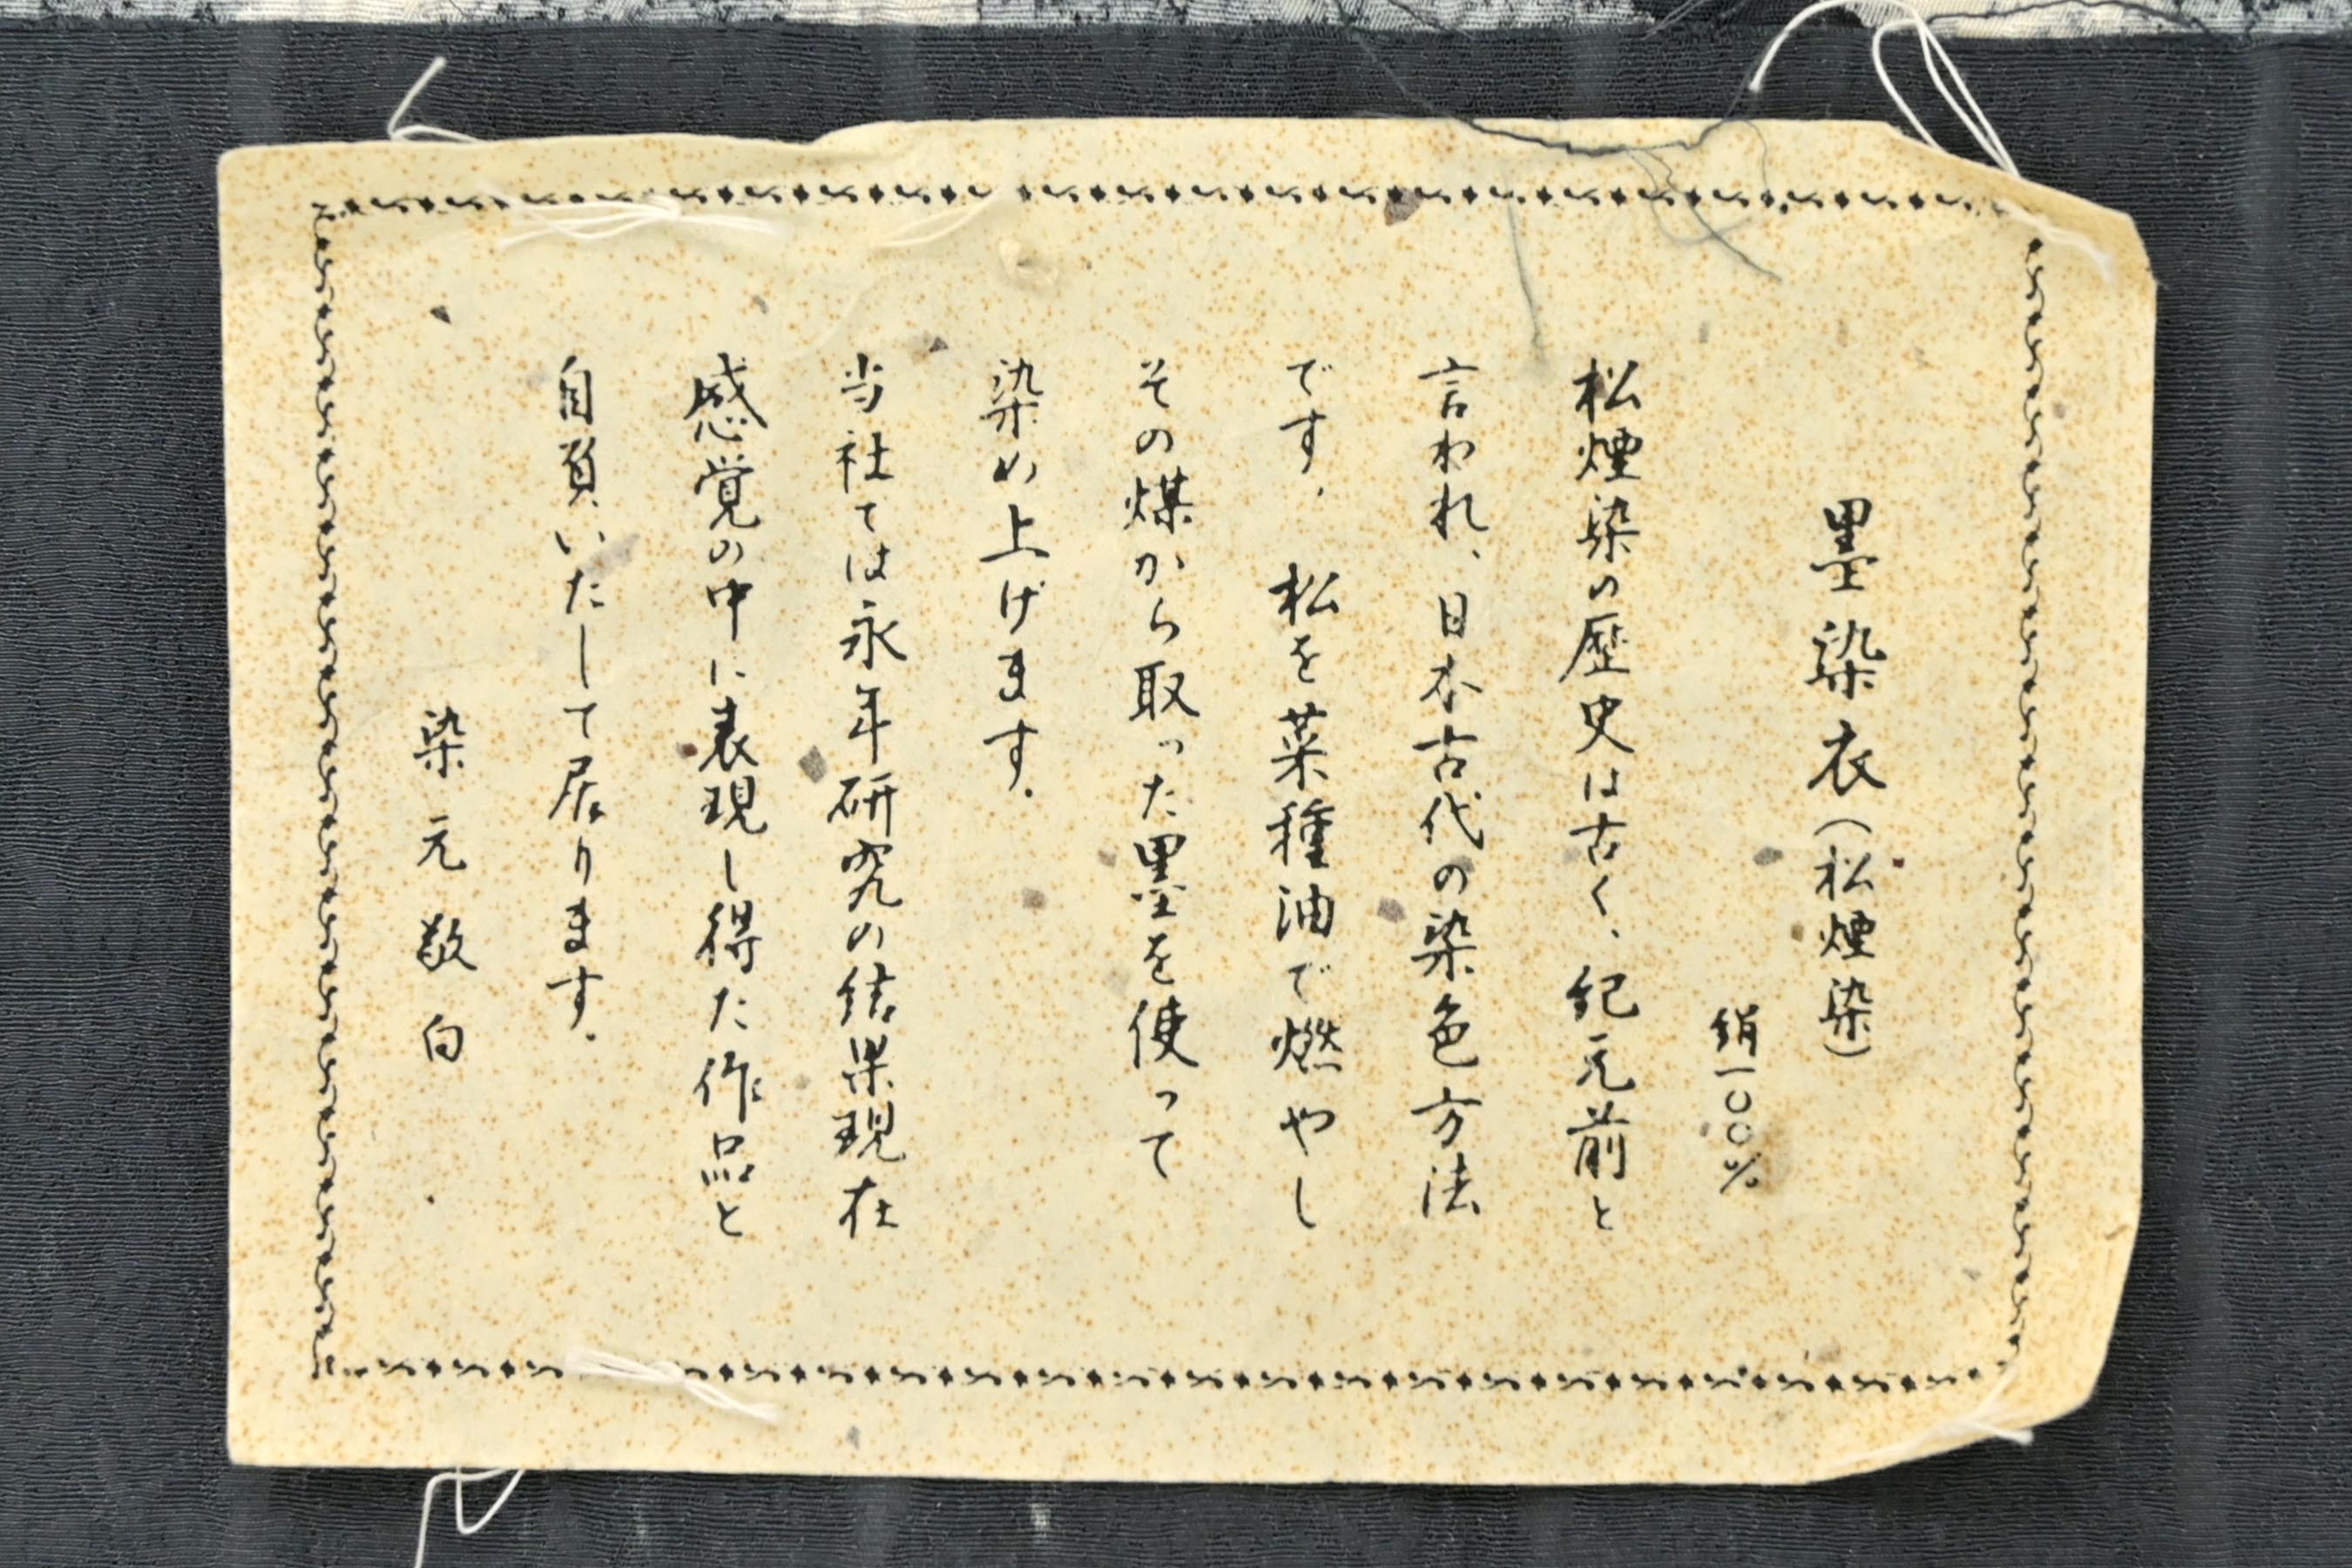 墨染衣(松煙染)
絹一〇〇%
松煙染の歴史は古く、紀元前と
言われ、日本古代の染色方法
です。 松を菜種油で燃やし
その煤から取った墨を使って
染め上げます。
当社ては永年研究の結果現在
感覚の中に表現し得た作品と
自負いたして居ります。
染元敬白